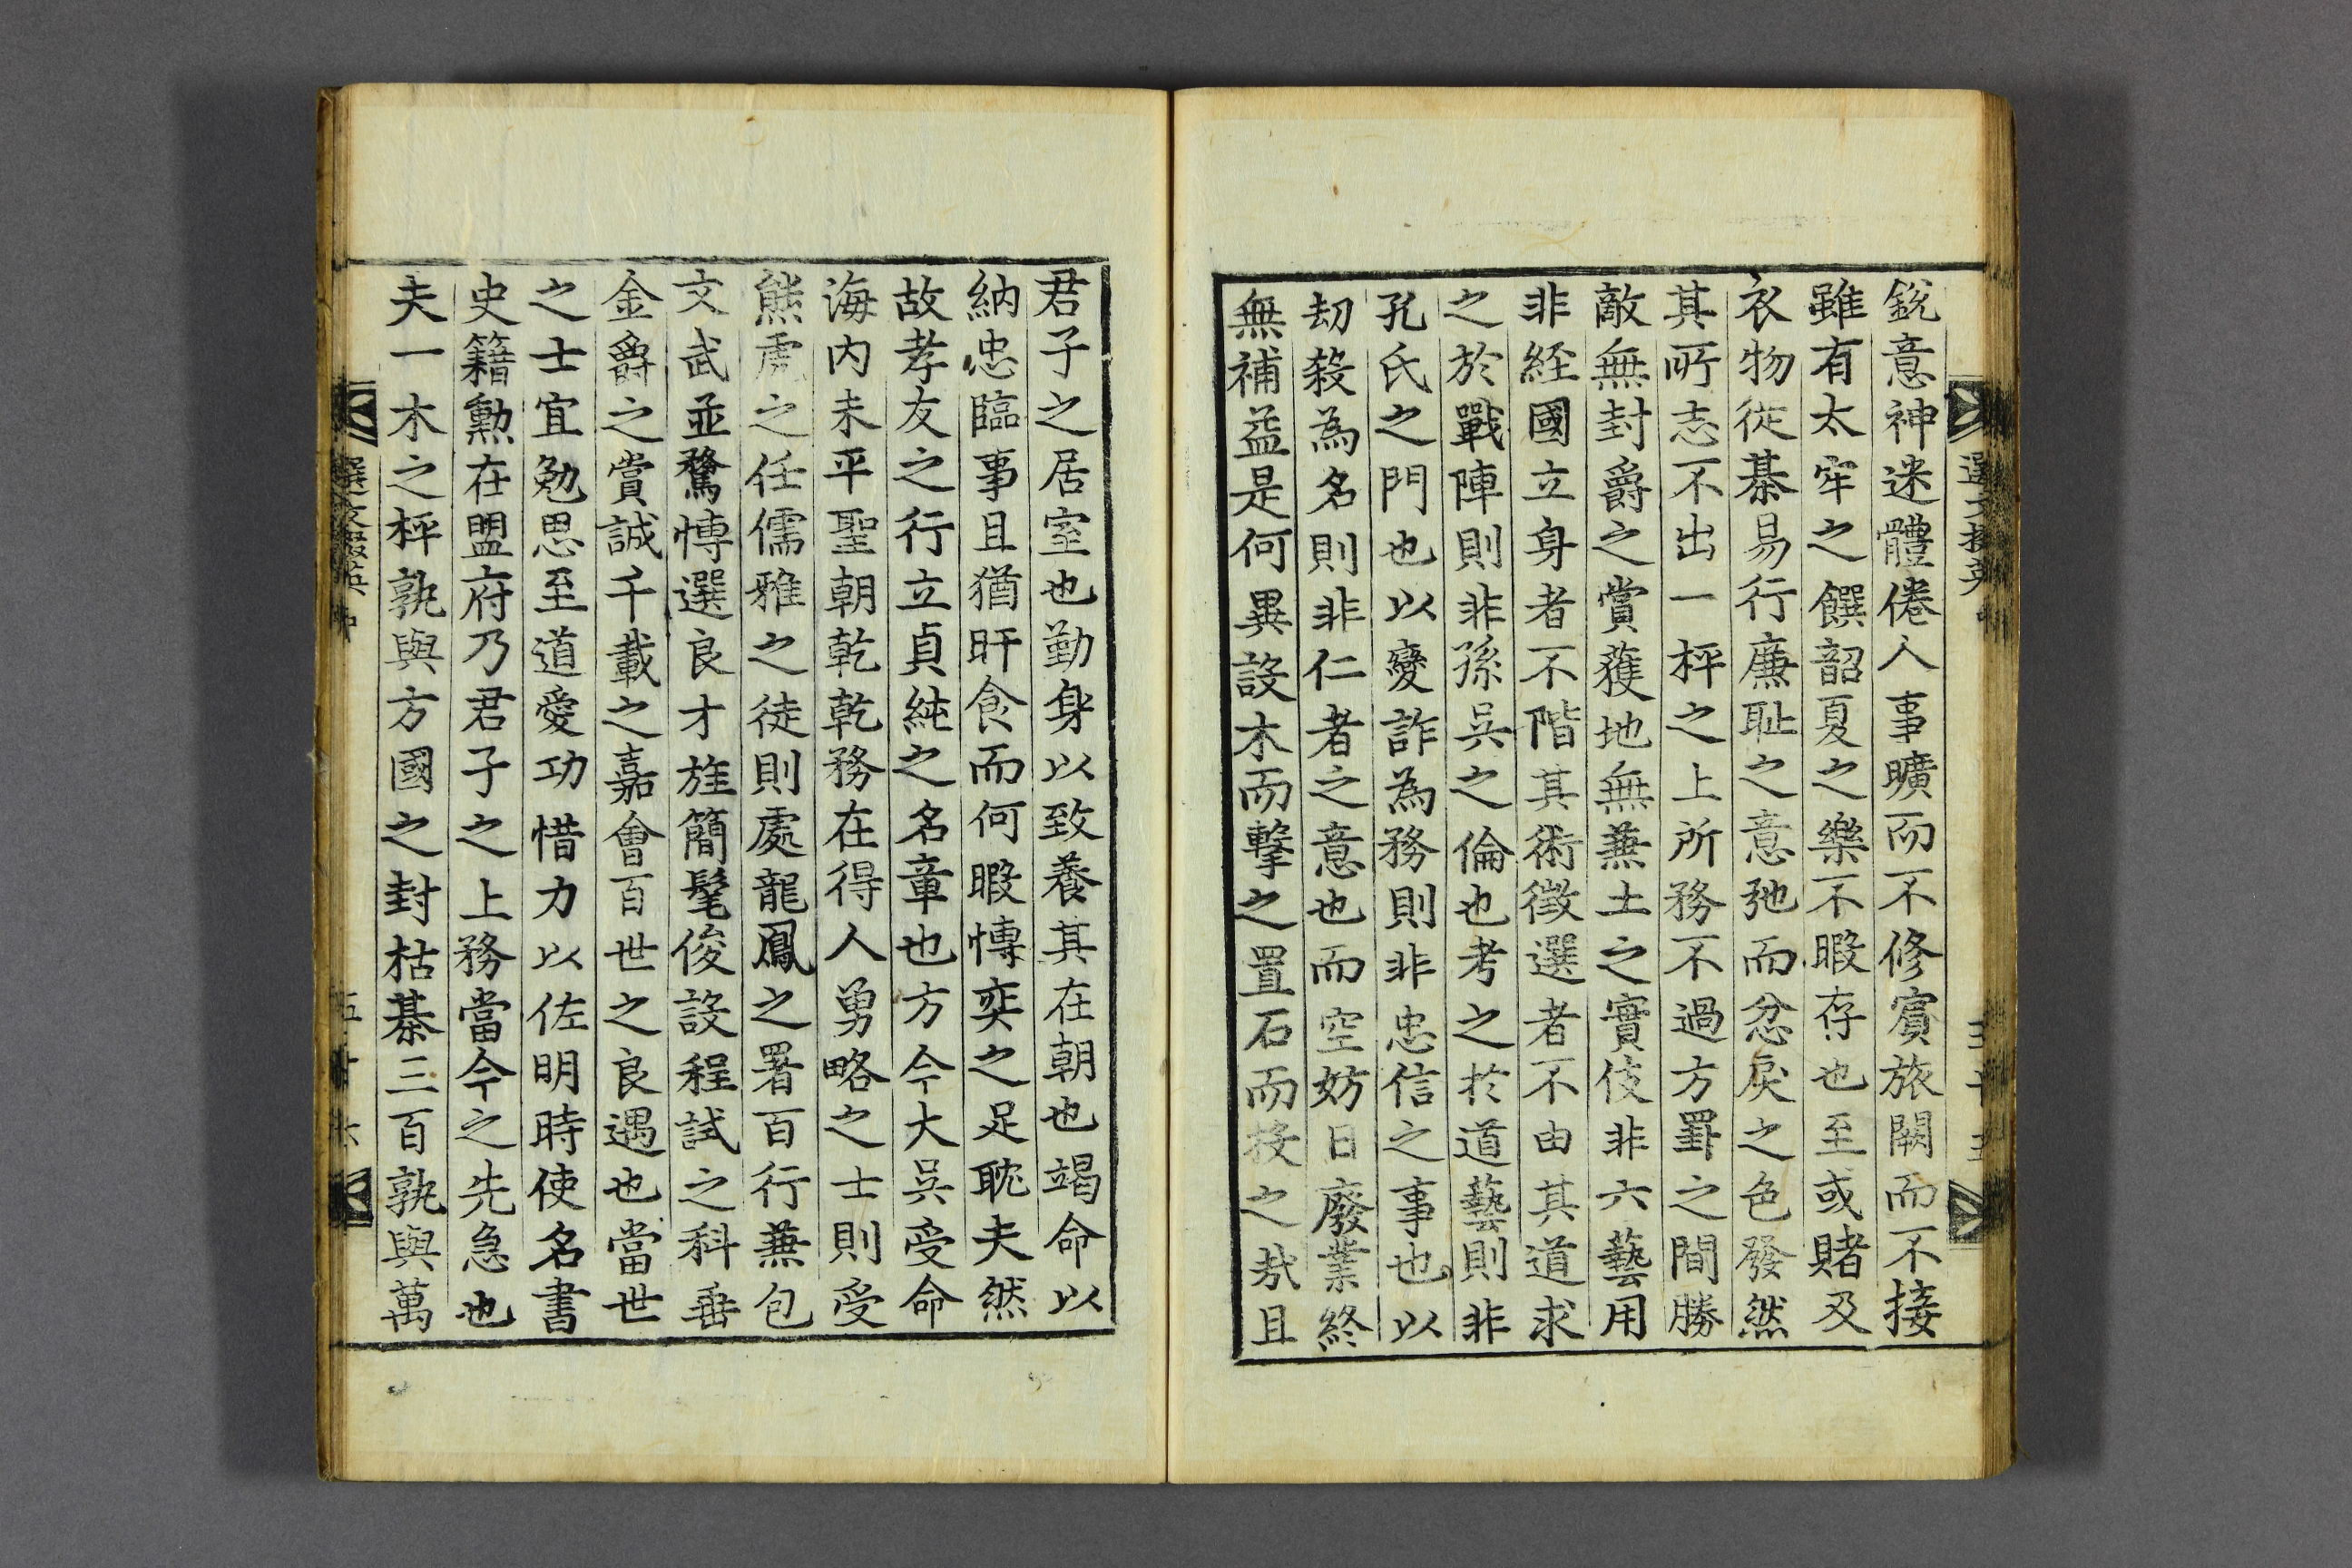 銳意神迷體倦人事曠而不修賔旅闕而不接
雖有太牢之饌韶夏之樂不暇存也至或賭及
衣物徙棊易行廉耻之意弛而忿戾之色發然
其所志不出一枰之上所務不過方罫之間勝
敵無封爵之賞䕶地無兼土之實伎非六藝用
非經國立身者不階其術徵選者不由其道求
之於戰陣則非孫吳之倫也考之於道藝則非
孔氏之門也以變詐為務則非忠信之事也以
刼殺為名則非仁者之意也而空妨日廢業終
無補益是何異設木而擊之置石而投之㢤且
君子之居室也勤身以致養其在朝也竭命以
納忠臨事且猶旰食而何暇慱奕之足耽夫然
故孝友之行立貞純之名章也方今大吳受命
海内未平聖朝乾乾務在得人勇略之士則受
熊虎之任儒雅之徒則處龍鳳之署百行兼包
文武並騖慱選良才旌簡髦俊設程試之科垂
金爵之賞誠千載之嘉會百世之良遇也當世
之士宜勉思至道愛功惜力以佐明時使名書
史籍勲在盟府乃君子之上務當今之先急也
夫一木之枰孰與方國之封枯棊三百孰與萬
選文掇英
五十六